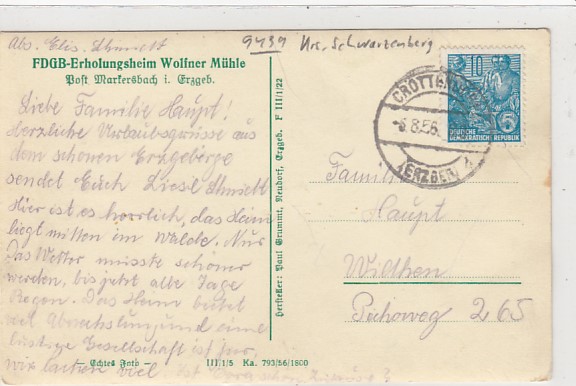 Abs. Elis. Schmidt
9439 Krs. Schwarzenberg
FDGB-Erholungsheim Wolfner Mühle
Post Markersbach i. Erzgeb.
Liebe Familie Haupt!
Herzliche Urlaubsgrüsse aus
dem schönen Erzgebirge
sendet Euch Liesl Schmidt
Hier ist es herrlich, das Heim
liegt mitten im Walde. Nur
das Wetter müsste schöner
werden, bis jetzt alle Tage
Regen. Das Heim bietet
viel Abwechslung und eine
lustige Gesellschaft ist hier,
wir lachen viel. Ist
— Echtes Foto —
III/1/5 Ka. 793/56/1800
Hersteller: Paul Grummt, Neudorf, Erzgeb. F III/1/22
10
DEUTSCHE
DEMOKRATISCHE REPUBLIK
5
-6.8.56.
(ERZGEB)
Familie
Haupt
Wilthen
265